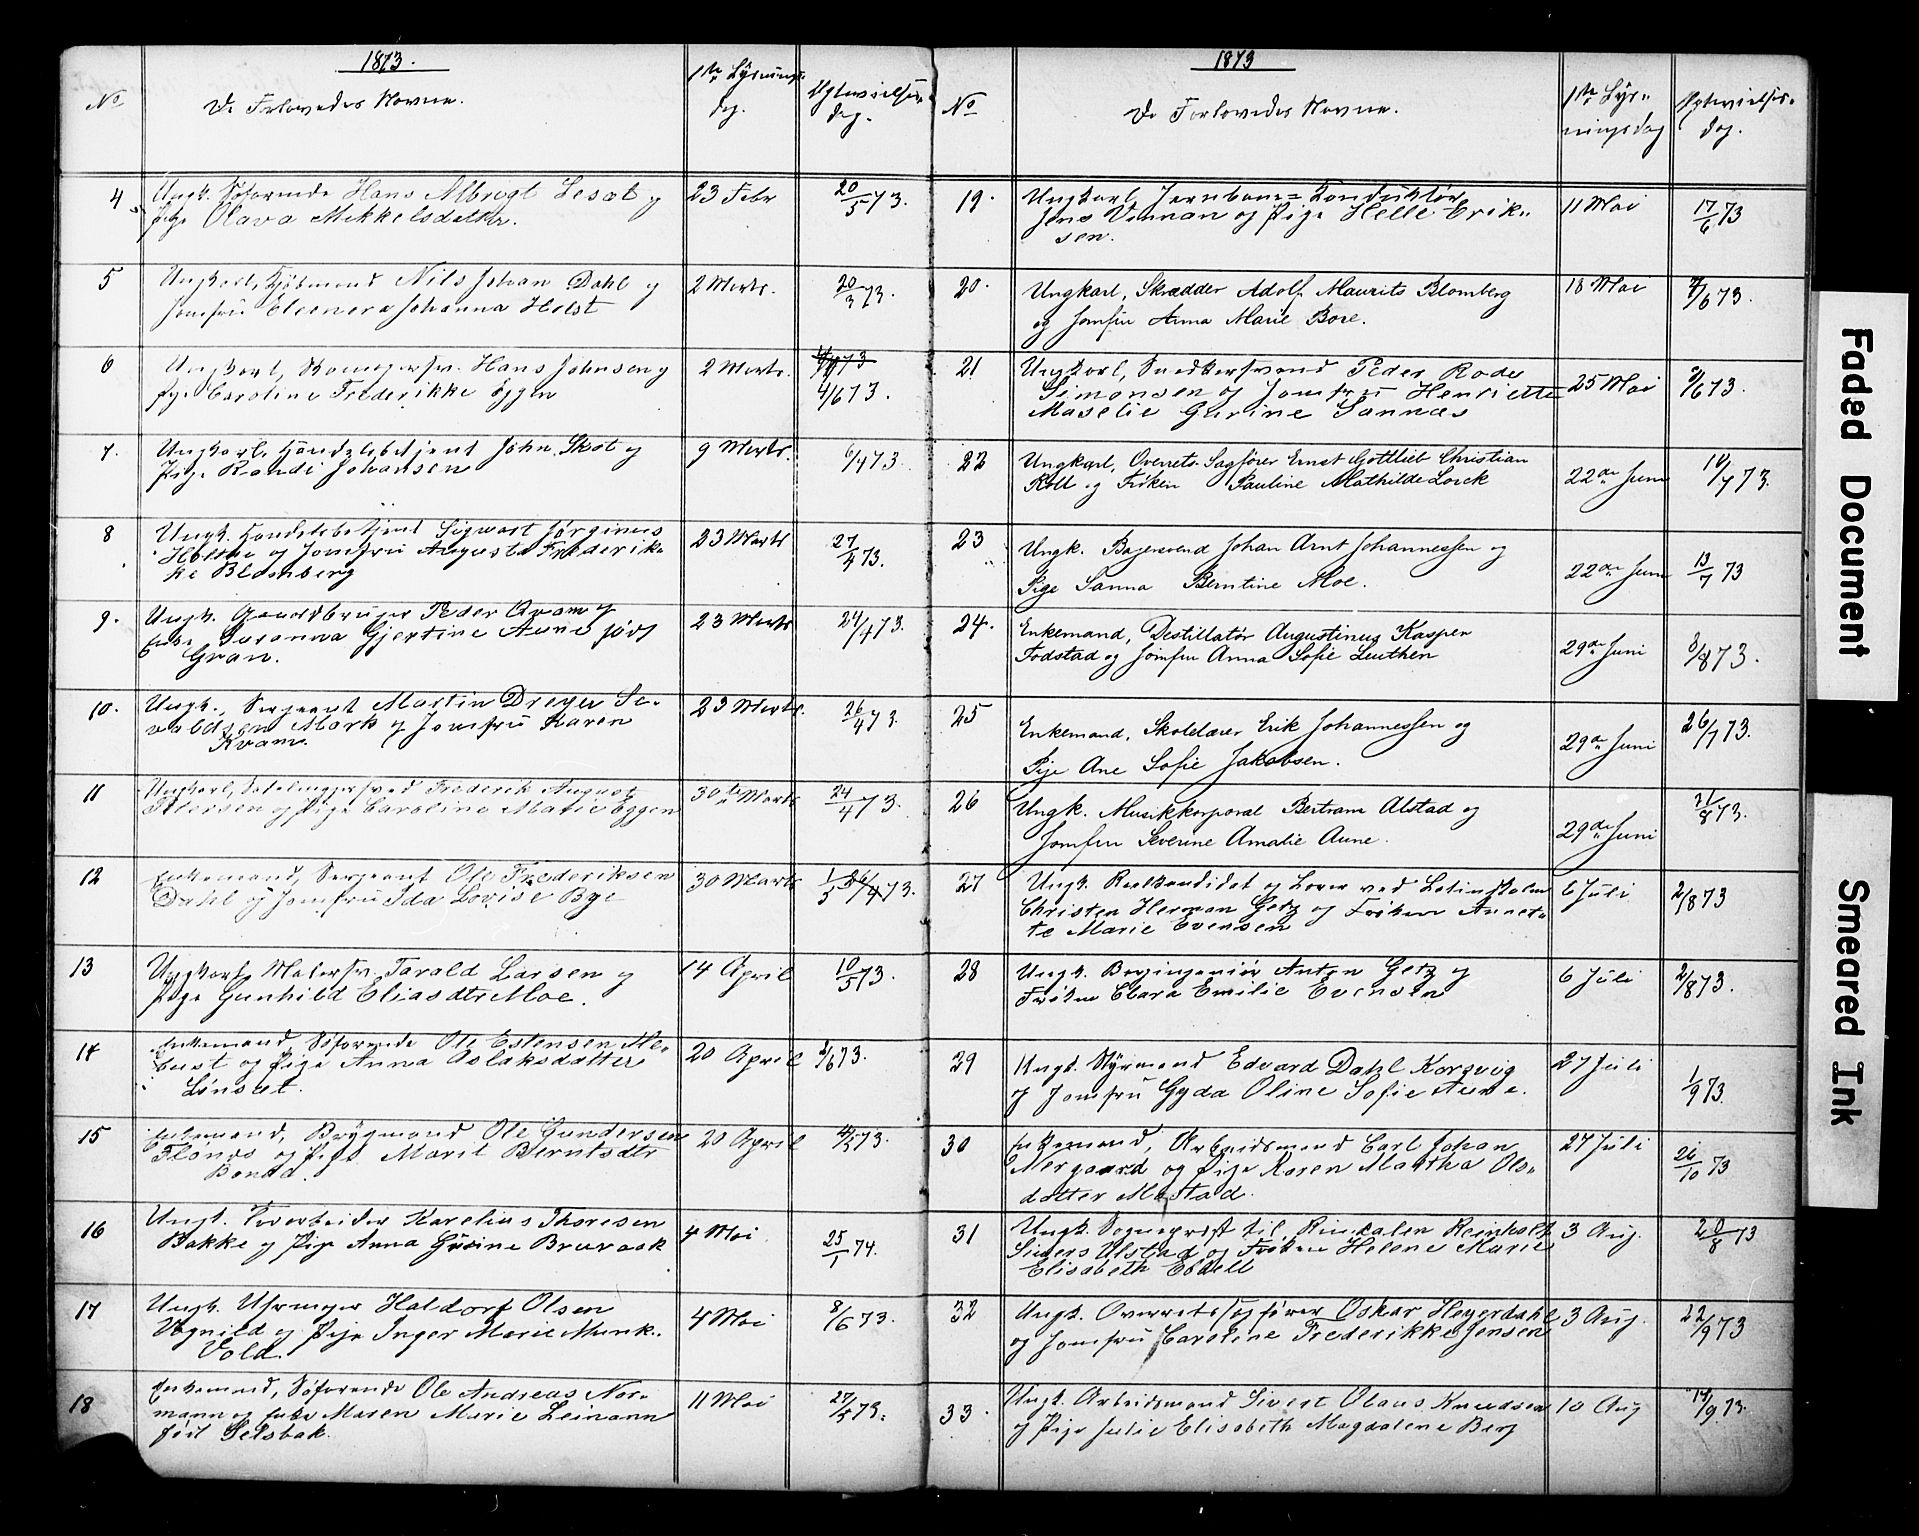 1873.
No
De Forlovedes Navne.
1ste Lysnings-
dag.
Vigtevielses-
dag.
4
Ungk. Søfarende Hans Albregt Lesæt og
Pige Olava Mikkelsdatter.
23 Febr
20/5 73.
5
Ungkarl, Kjøbmand Nils Johan Dahl og
Jomfru Eleenora Johanna Holst
2 Marts.
20/3 73.
6
Ungkarl, Hans Johnsen og
Pige Caroline Frederikke Eggen
2 Marts.
4/6 73.
7.
Ungkarl, Handelsbetjent John Skot og
Pige Randi Johansen
9 Marts.
6/4 73.
8
Ungk. Handelsbetjent Sigwart Jørginus
Holthe og Jomfru Augusta Frederik-
ke Blomberg
23 Marts
27/4 73.
9.
Ungk. Gaardbruger Peder Qvam og
Enke Susanna Gjertine Aune født
Gran.
23 Marts
24/4 73.
10.
Ungk., Sergeant Martin Dreyer Si-
valdsen Mørk og Jomfru Karen
Kvam.
23 Marts.
26/4 73.
11
Ungkarl, Frederik August
Petersen og Pige Caroline Marie Eggen
30te Marts
24/4 73.
12
Enkemand, Sergeant Ole Frederiksen
Dahl og Jomfru Ida Lovise Bye
30 Marts
1/5 26/4 73.
13
Ungkarl, Malersv. Tarald Larsen og
Pige Gunhild Eliasdtr Moe.
14 April
10/5 73.
14
Enkemand, Søfarende Ole Estensen Me-
bust og Pige Anna Aslaksdatter
Linset.
20 April
1/6 73.
15
Enkemand, Brygmand Ole Gundersen
Flønes og Pige Marit Berntsdtr
20 April
16
Ungk. Karelius Thoresen
Bakke og Pige Anna Gurine Bruraak
4 Mai
25/1 74.
17
Ungk. Haldorf Olsen
Vognild og Pige Inger Marie Munk-
Vold.
4 Mai
8/6 73.
18
Enkemand, Søfarende Ole Andreas Nor-
mann og Enke Maren Marie Leimann
født Selsbak.
11 Mai
27/5 73.
1873
No
De Forlovedes Navne.
1ste Lys-
ningsdag
Vigtevielses-
dag.
19.
Ungkarl Jernbane-Konduktør
Jens Vinnan og Pige Helle Erik-
sen.
11 Mai
17/6 73
20.
Ungkarl, Skrædder Adolf Maurits Blomberg
og Jomfru Anna Marie Bore.
18 Mai
21
Ungkarl, Snedkersvend Peder Roder
Simonsen og Jomfru Henriette
Maselie Gurine Sannæs
25 Mai
22
Ungkarl, Overrets-Sagfører Ernst Gottlieb Christian
Roll og Frøken Pauline Mathilde Lorck
22de Juni
10/7 73.
23
Ungk. Bagersvend Johan Arnt Johannessen og
Pige Sanna Berntine Moe.
22de Juni
13/7 73
24.
Enkemand, Destillatør Augustinus Kasper
Fodstad og Jomfru Anna Sofie Leuthen
29de Juni
8/8 73.
25
Enkemand, Skolelærer Erik Johannessen og
Pige Ane Sofie Jakobsen.
29de Juni
26/7 73.
26
Ungk. Musikkorporal Bertram Alstad og
Jomfru Severine Amalie Aune.
29de Juni
31/8 73.
27
Ungk. Realkandidat og Lærer ved Latinskolen
Christen Herman Getz og Frøken Annet-
te Marie Evensen
6 Juli
2/8 73
28
Ungk. Bergingeniør Anton Getz og
Frøken Clara Emilie Evensen
6 Juli
2/8 73.
29
Ungk. Styrmand Edvard Dahl Korsvig
og Jomfru Gyda Oline Sofie Aune.
27 Juli
1/9 73.
30
Enkemand, Arbeidsmand Carl Johan
Nergaard og Pige Karen Martha Ols-
datter Mostad.
27 Juli
26/10 73
31
Ungk. Sognepræst til Rindalen Reinholt
Sivers Ulstad og Frøken Helene Marie
Elisabeth Ebdell
3 Aug.
20/8 73
32
Ungk. Overretssagfører Oskar Heyerdahl
og Jomfru Caroline Frederikke Jensen
3 Aug.
22/9 73
33.
Ungk. Arbeidsmand Sivert Olaus Knudsen
og Pige Julie Elisabeth Magdalene Berg
10 Aug
14/9 73.
Faded Document
Smeared Ink